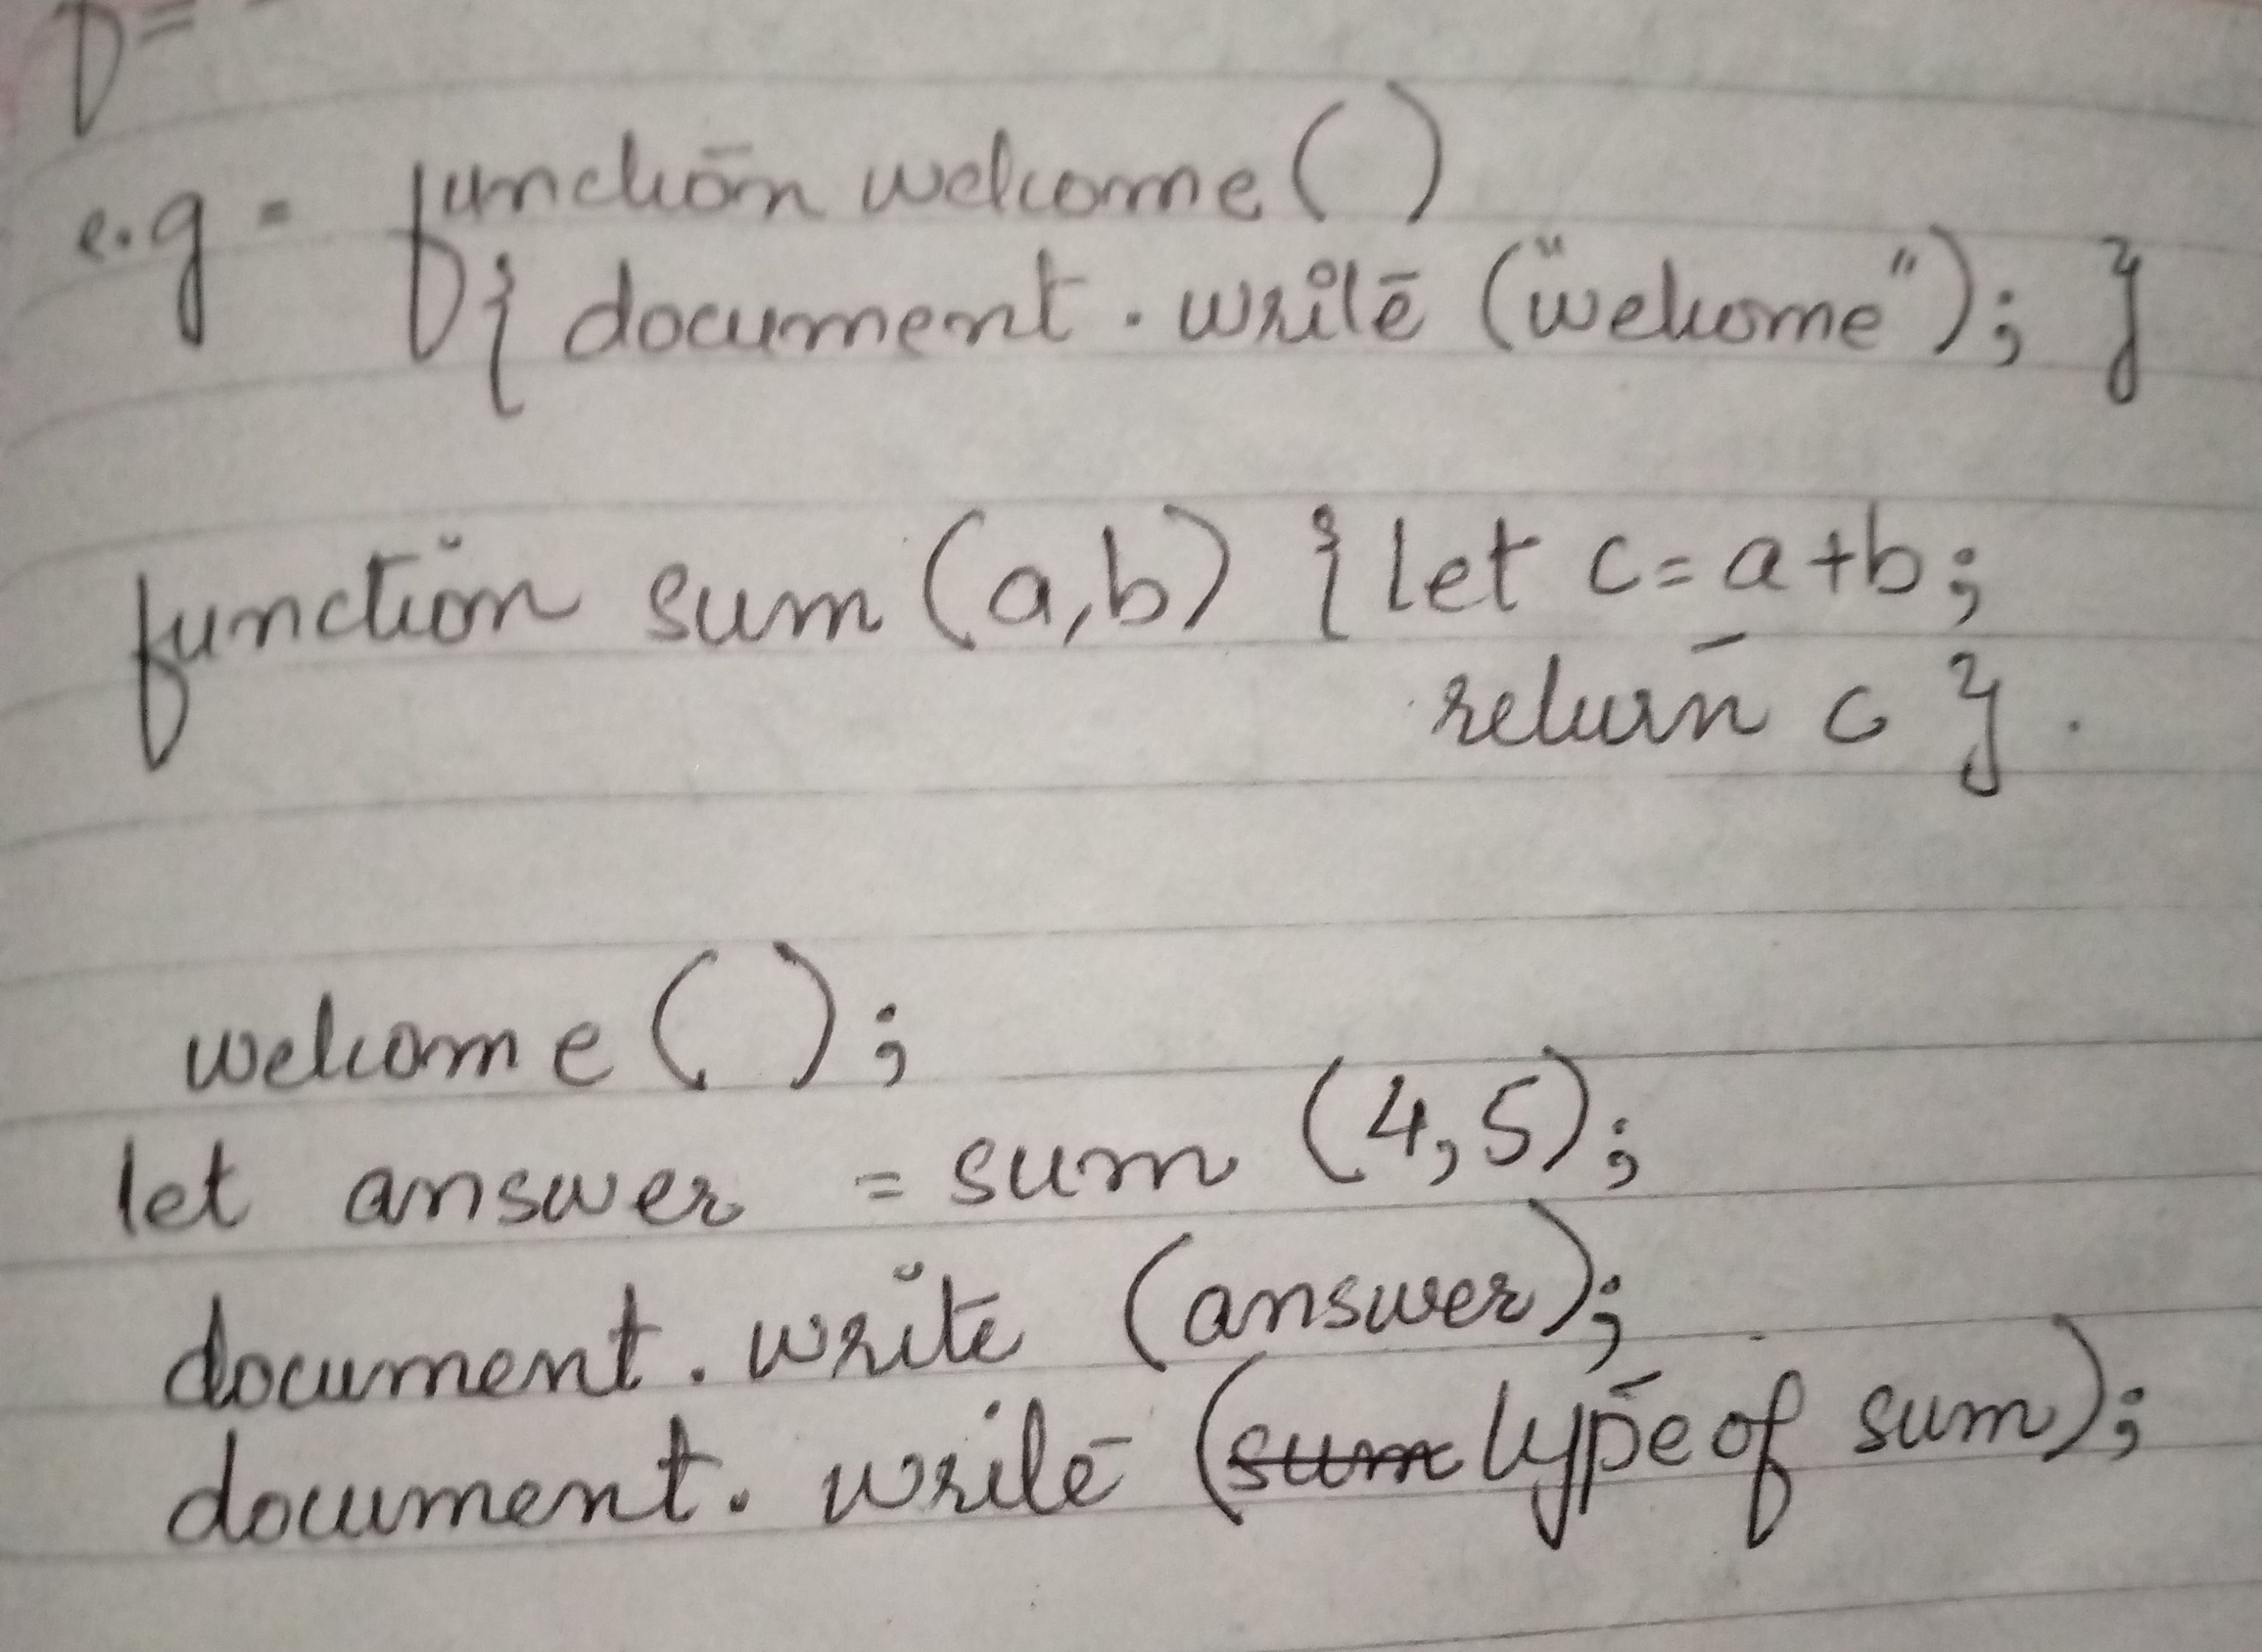 e.g - function welcome()
{ document.write ("welcome"); }
function sum (a,b) { let c=a+b;
return c }.
welcome();
let answer = sum (4,5);
document.write (answer);
document.write (sum typeof sum);